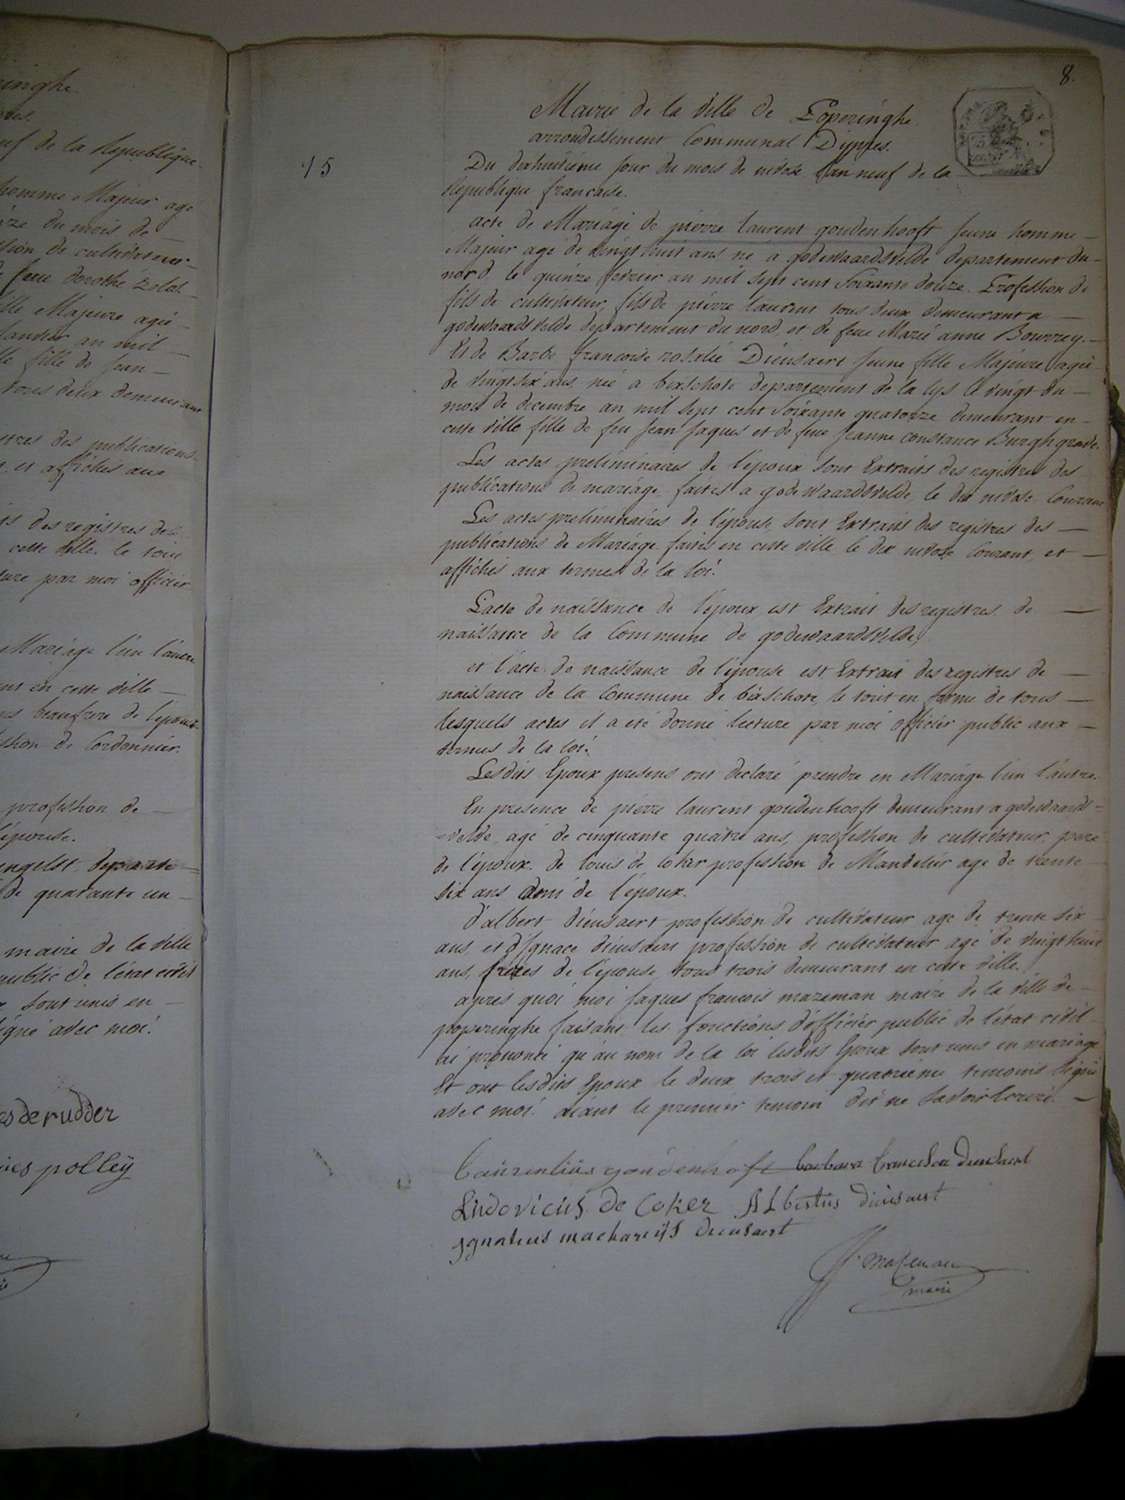 inghe.
res.
uf de la Republique
homme Majeur agé
ze du mois de
sion de cultivateur
feue dorothé
lle Majeure agée
Janvier an mil
le fille de Jean
tous deux demeurant
tres des publications
et affichés aux
ts des registres des
cette ville le tout
ture par moi officier
Mariage l'un l'autre
nt en cette ville
beaufrere de l'epouse
sion de Cordonnier.
profession de
l'épouse.
departe
de quarante un
maire de la ville
public de l'état civil
sont unis en
igné avec moi.
es de rudder
polleÿ
8.
15
Mairie de la ville de Poperinghe.
arrondissement Communal D'ypres.
Du dixhuitieme Jour du mois de nivose L'an neuf de la
Republique francaise.
acte de Mariage de pierre laurent goudenhooft Jeune homme
Majeur agé de vingt huit ans né a godewaardsvelde departement du
nord le quinze fevrier an mil sept cent Soixante douze. Profession de
fils de cultivateur, fils de pierre laurent tous deux demeurant a
godewaardsvelde departement du nord, et de feue Marie anne Bourrey.
Et de Barbe francoise rosalie Dieusaert Jeune fille Majeure agée
de vingtsix ans née a bixschote departement de la lys le vingt du
mois de decembre an mil sept cent Soixante quatorze demeurant en
cette ville fille de feu Jean Jaques et de feue Jeanne constance Burghgrave.
Les actes preliminaires de l'époux sont Extraits des registres des
publications de mariage faites a godewaardsvelde le dix nivose Courant
Les actes preliminaires de l'épouse sont Extraits des registres des
publications de Mariage faites en cette ville le dix nivose Courant, et
affichés aux termes de la loi.
L'acte de naissance de l'époux est Extrait des registres de
naissance de la Commune de godewaardsvelde,
et l'acte de naissance de l'épouse est Extrait des registres de
naissance de la Commune de bixschote, le tout en forme de tous
lesquels actes il a été donné lecture par moi officier public aux
termes de la loi.
Lesdits Epoux presens ont declaré prendre en Mariage l'un l'autre.
En presence de pierre laurent goudenhooft demeurant a godewaards-
velde, agé de cinquante quatre ans, profession de cultivateur, pere
de l'époux. de louis de coker profession de agé de trente
six ans de l'époux.
d'albert dieusaert profession de cultivateur agé de trente six
ans, et d'Ignace dieusaert profession de cultivateur agé de vingt huit
ans, freres de l'épouse, tous trois demeurant en cette ville.
apres quoi moi Jaques francois mazeman maire de la ville de
poperinghe faisant les fonctions d'officier public de l'état civil
ai prononcé qu'au nom de la loi lesdits Epoux sont unis en mariage
Et ont lesdits Epoux le deux trois et quatrieme temoins signé
avec moi. aiant le premier temoin dit ne savoir Ecrire.
Laurentius goudenhooft barbara francisca dieusaert
Ludovicus De Coker Albertus dieusaert
Ignatius macharius dieusaert
J f mazeman
maire